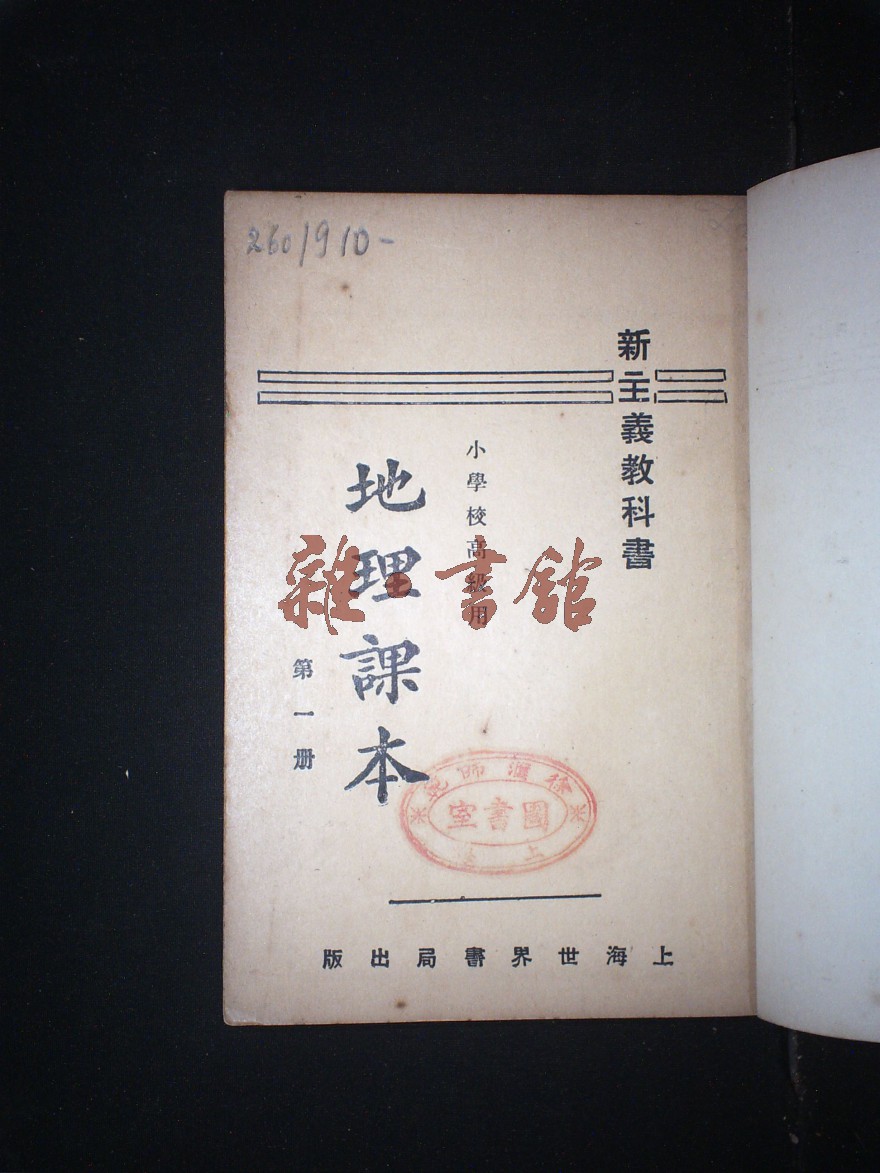 260/910-
新主義教科書
小學校高級用
地理課本
第一册
雜·書館
徐滙師範
圖書室
上海
上海世界書局出版